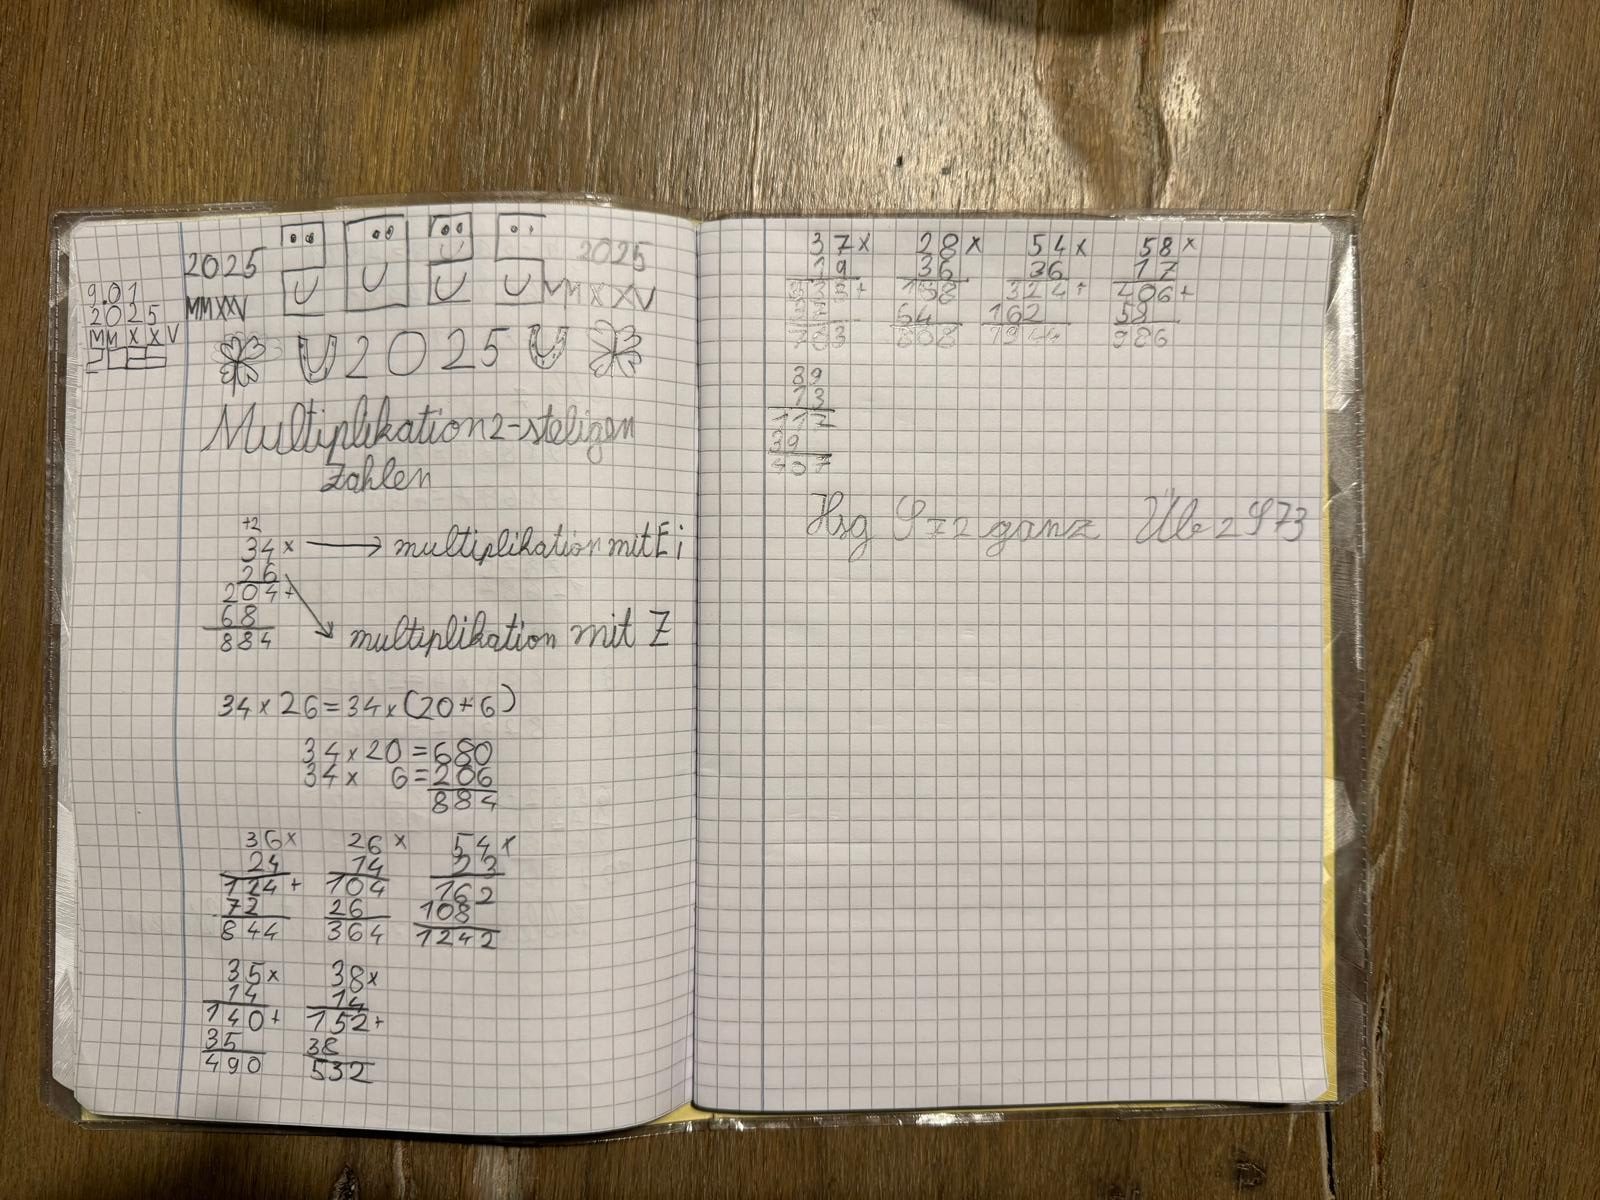 9.01
2025
MMXXV
2025
MMXXV
2025
MMXXV
2025
Multiplikation 2-steligen
Zahlen
+2
34x → multiplikation mit E i
26
204+
68
884
multiplikation mit Z
34 x 26 = 34 x (20 + 6)
34 x 20 = 680
34 x 6 = 206
884
36x
24
124+
72
844
26x
14
104
26
364
54x
23
162
108
1242
35x
14
140+
35
490
38x
14
152+
38
532
37x
19
333+
37
703
28x
36
54x
36
324+
162
1944
58x
17
406+
58
986
39
13
117
39
Hsg S72 ganz Üb 2 S73